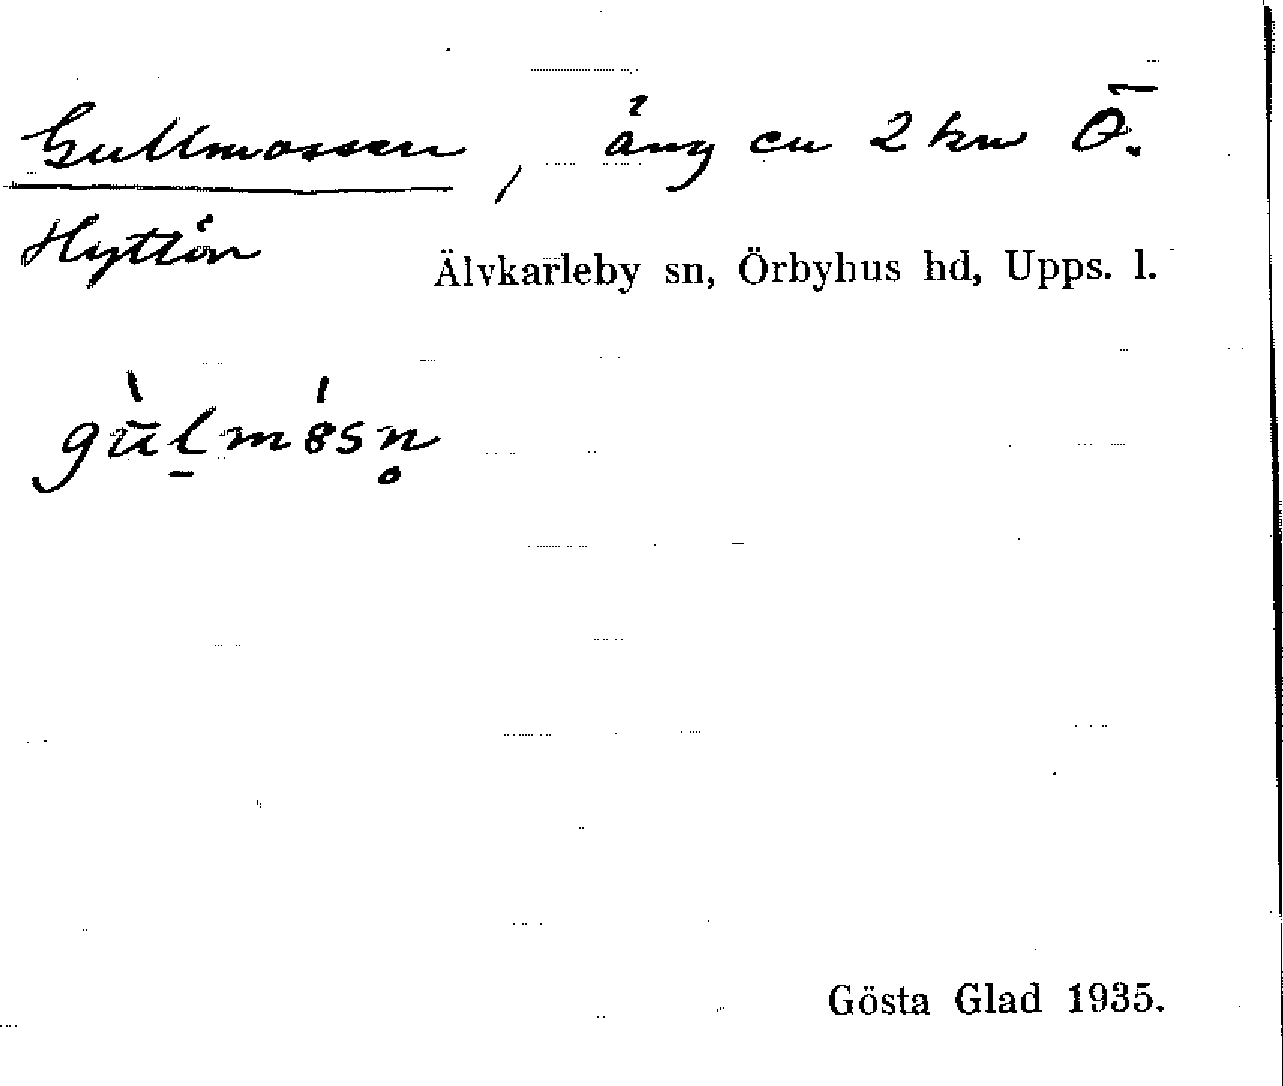 Gullmossen, äng ca 2 km Ö.
Hyttön
Älvkarleby sn, Örbyhus hd, Upps. l.
gùl̠mósn̥
Gösta Glad 1935.